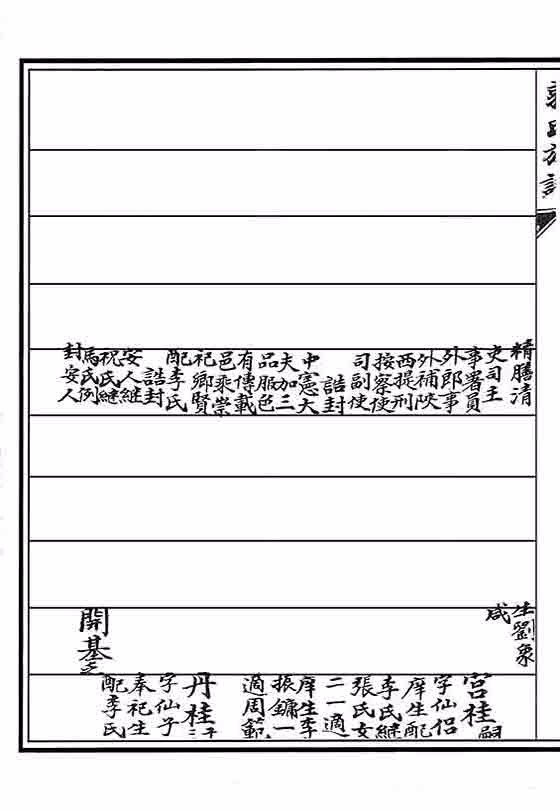 郭氏族譜
精膳清
吏司主
事署員
外郎事
外補陝
西提刑
按察使
司副使
誥封
中憲大
夫加三
品服色
有傳載
邑乘崇
祀鄉賢
配李氏
誥封
安人繼
祝氏繼
馬氏例
封安人
生劉象
咸
開基之
宮桂嗣
字仙侣
庠生配
李氏繼
張氏女
二一適
庠生李
振鏞一
適周範
丹桂三子
字仙子
奉祀生
配李氏